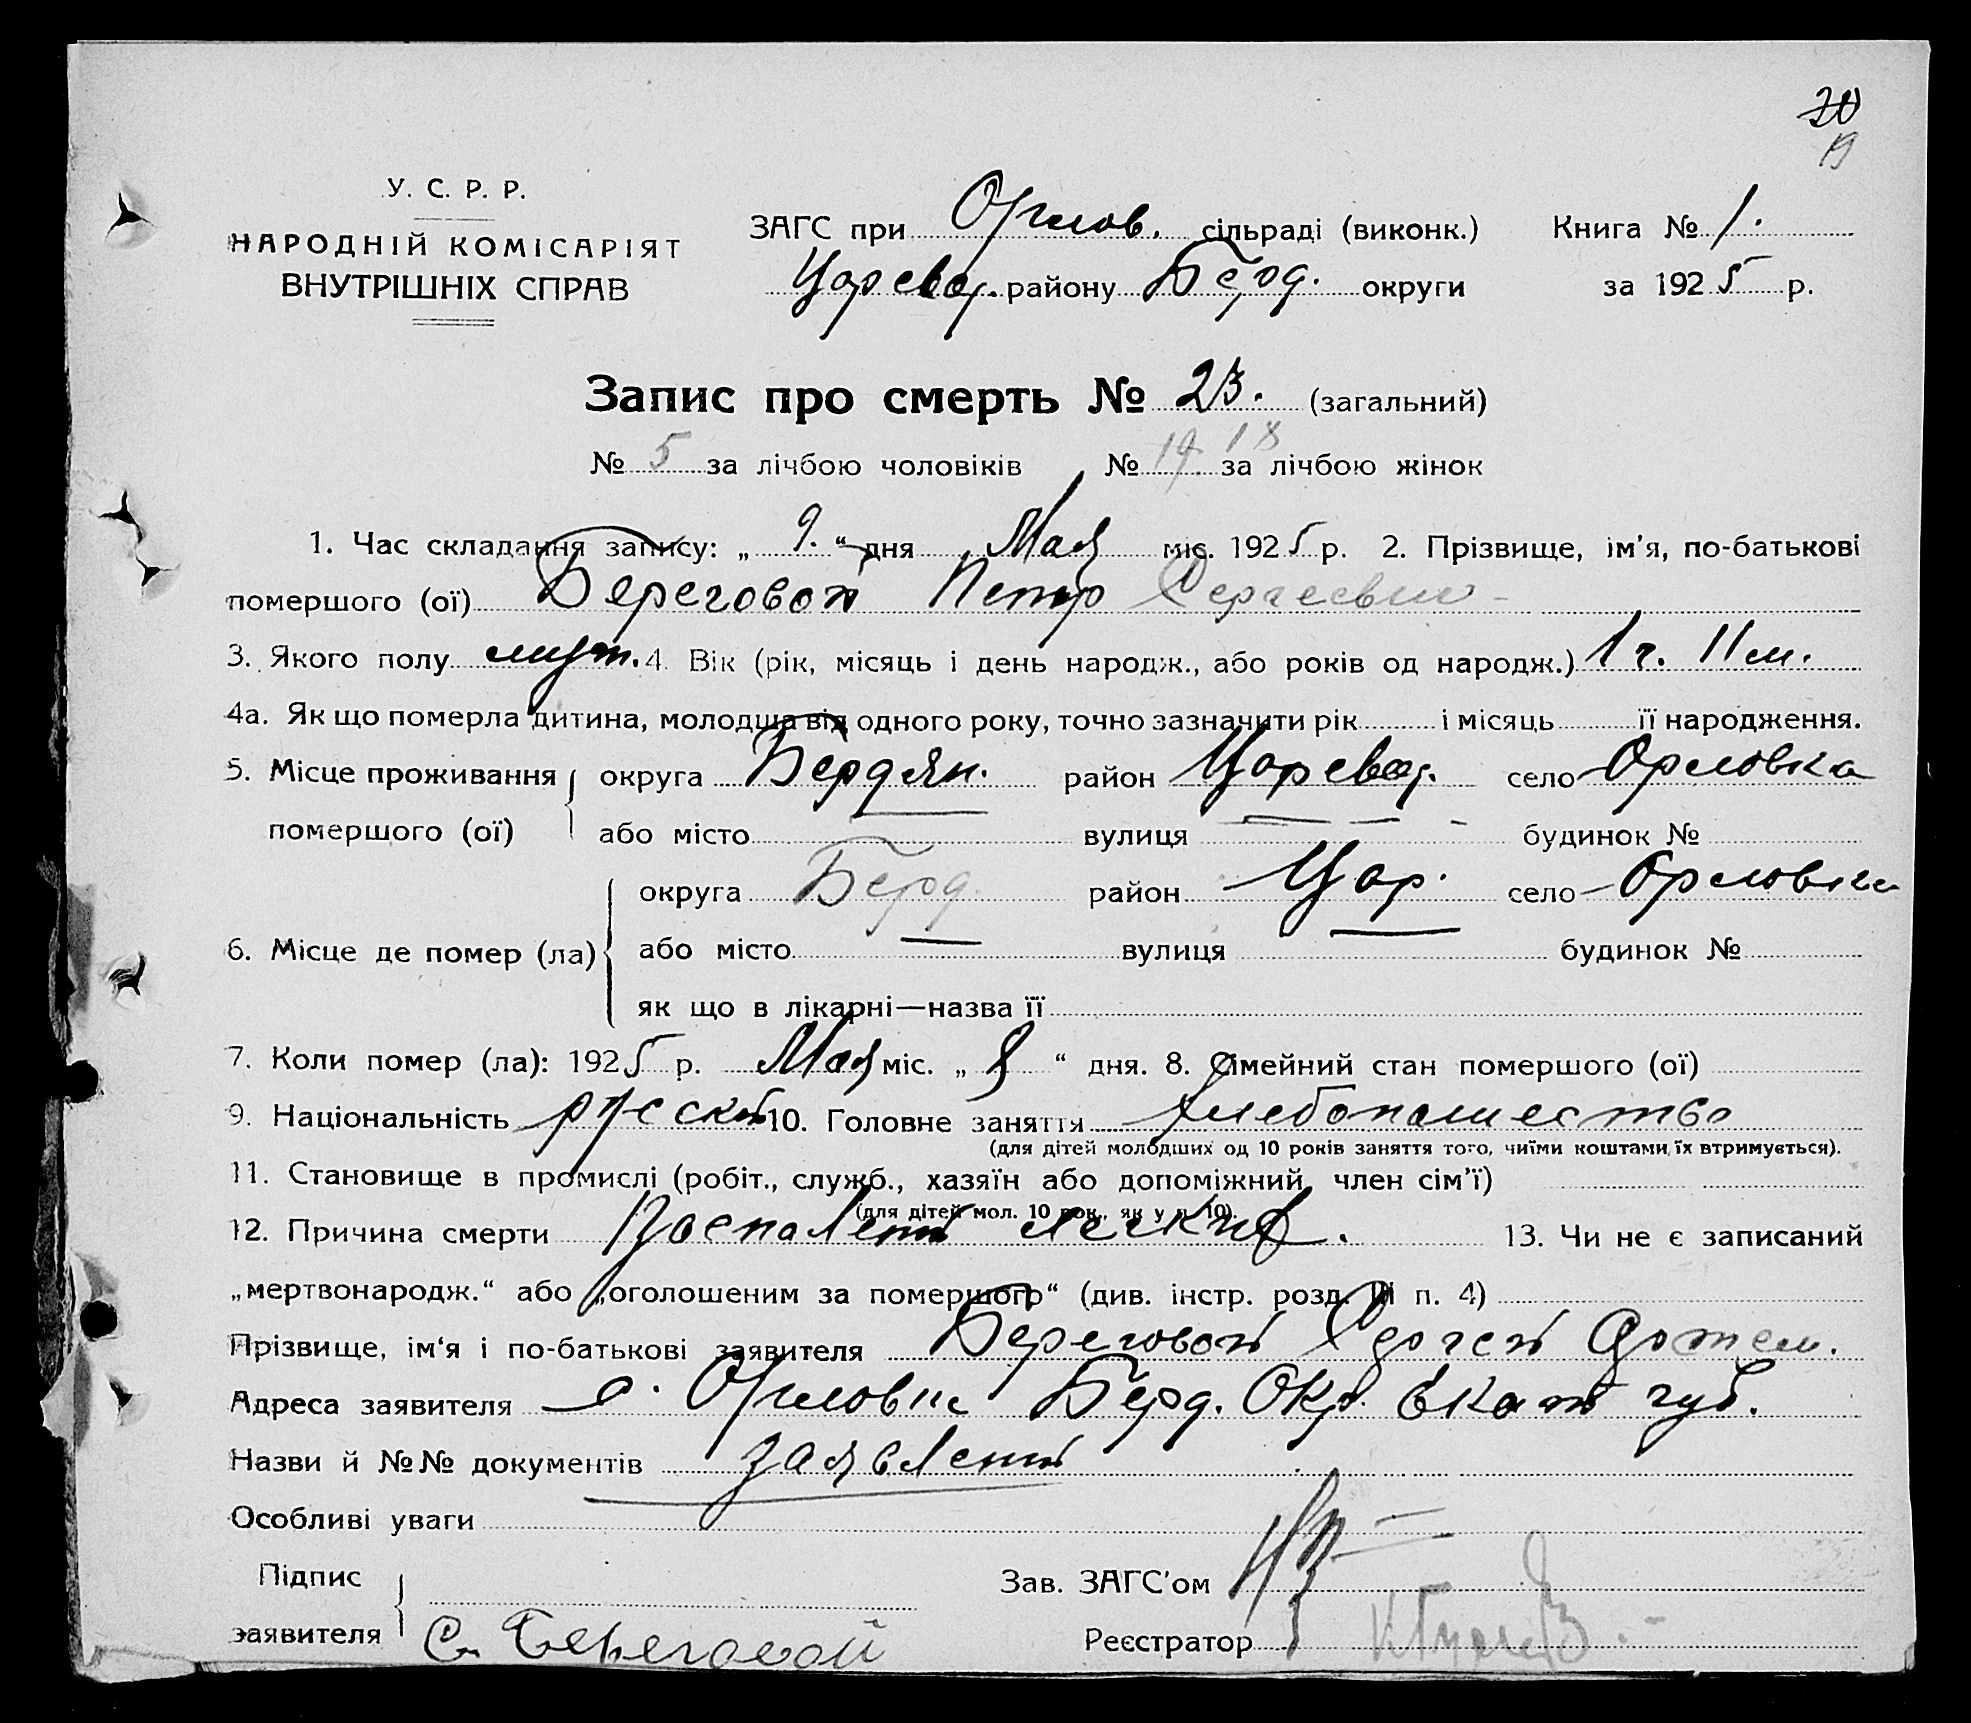 20
19
У. С. Р. Р.
НАРОДНІЙ КОМІСАРІЯТ
ВНУТРІШНІХ СПРАВ
ЗАГС при Орлов. сільраді (виконк.) Книга № 1.
Царевод. району Берд. округи за 1925 р.
Запис про смерть № 23. (загальний)
№ 5 за лічбою чоловіків № 19 18 за лічбою жінок
1. Час складання запису: „ 9. “ дня Мая міс. 1925 р. 2. Прізвище, ім'я, по-батькові
помершого (ої) Береговой Петр Сергеевич
3. Якого полу муж. 4. Вік (рік, місяць і день народж., або років од народж.) 1 г. 11 м.
4а. Як що померла дитина, молодша від одного року, точно зазначити рік і місяць її народження.
5. Місце проживання округа Бердян. район Царевод. село Орловка
помершого (ої) або місто вулиця будинок №
округа Берд. район Цар. село Орловка
6. Місце де помер (ла) або місто вулиця будинок №
як що в лікарні—назва її
7. Коли помер (ла): 1925 р. Мая міс. „ 8 “ дня. 8. Сімейний стан помершого (ої)
9. Національність русский 10. Головне заняття хлебопашество
(для дітей молодших од 10 років заняття того, чиїми коштами їх втримується).
11. Становище в промислі (робіт., служб., хазяїн або допоміжний член сім'ї)
(для дітей мол. 10 рок., як у п. 10).
12. Причина смерти Воспаление легких. 13. Чи не є записаний
„мертвонародж.“ або „оголошеним за помершого“ (див. інстр. розд. III п. 4)
Прізвище, ім'я і по-батькові заявителя Береговой Сергей Артем.
Адреса заявителя с. Орловка Берд. Окр. Екат губ.
Назви й №№ документів заявление
Особливі уваги
Підпис Зав. ЗАГС'ом
заявителя С. Береговой Реєстратор